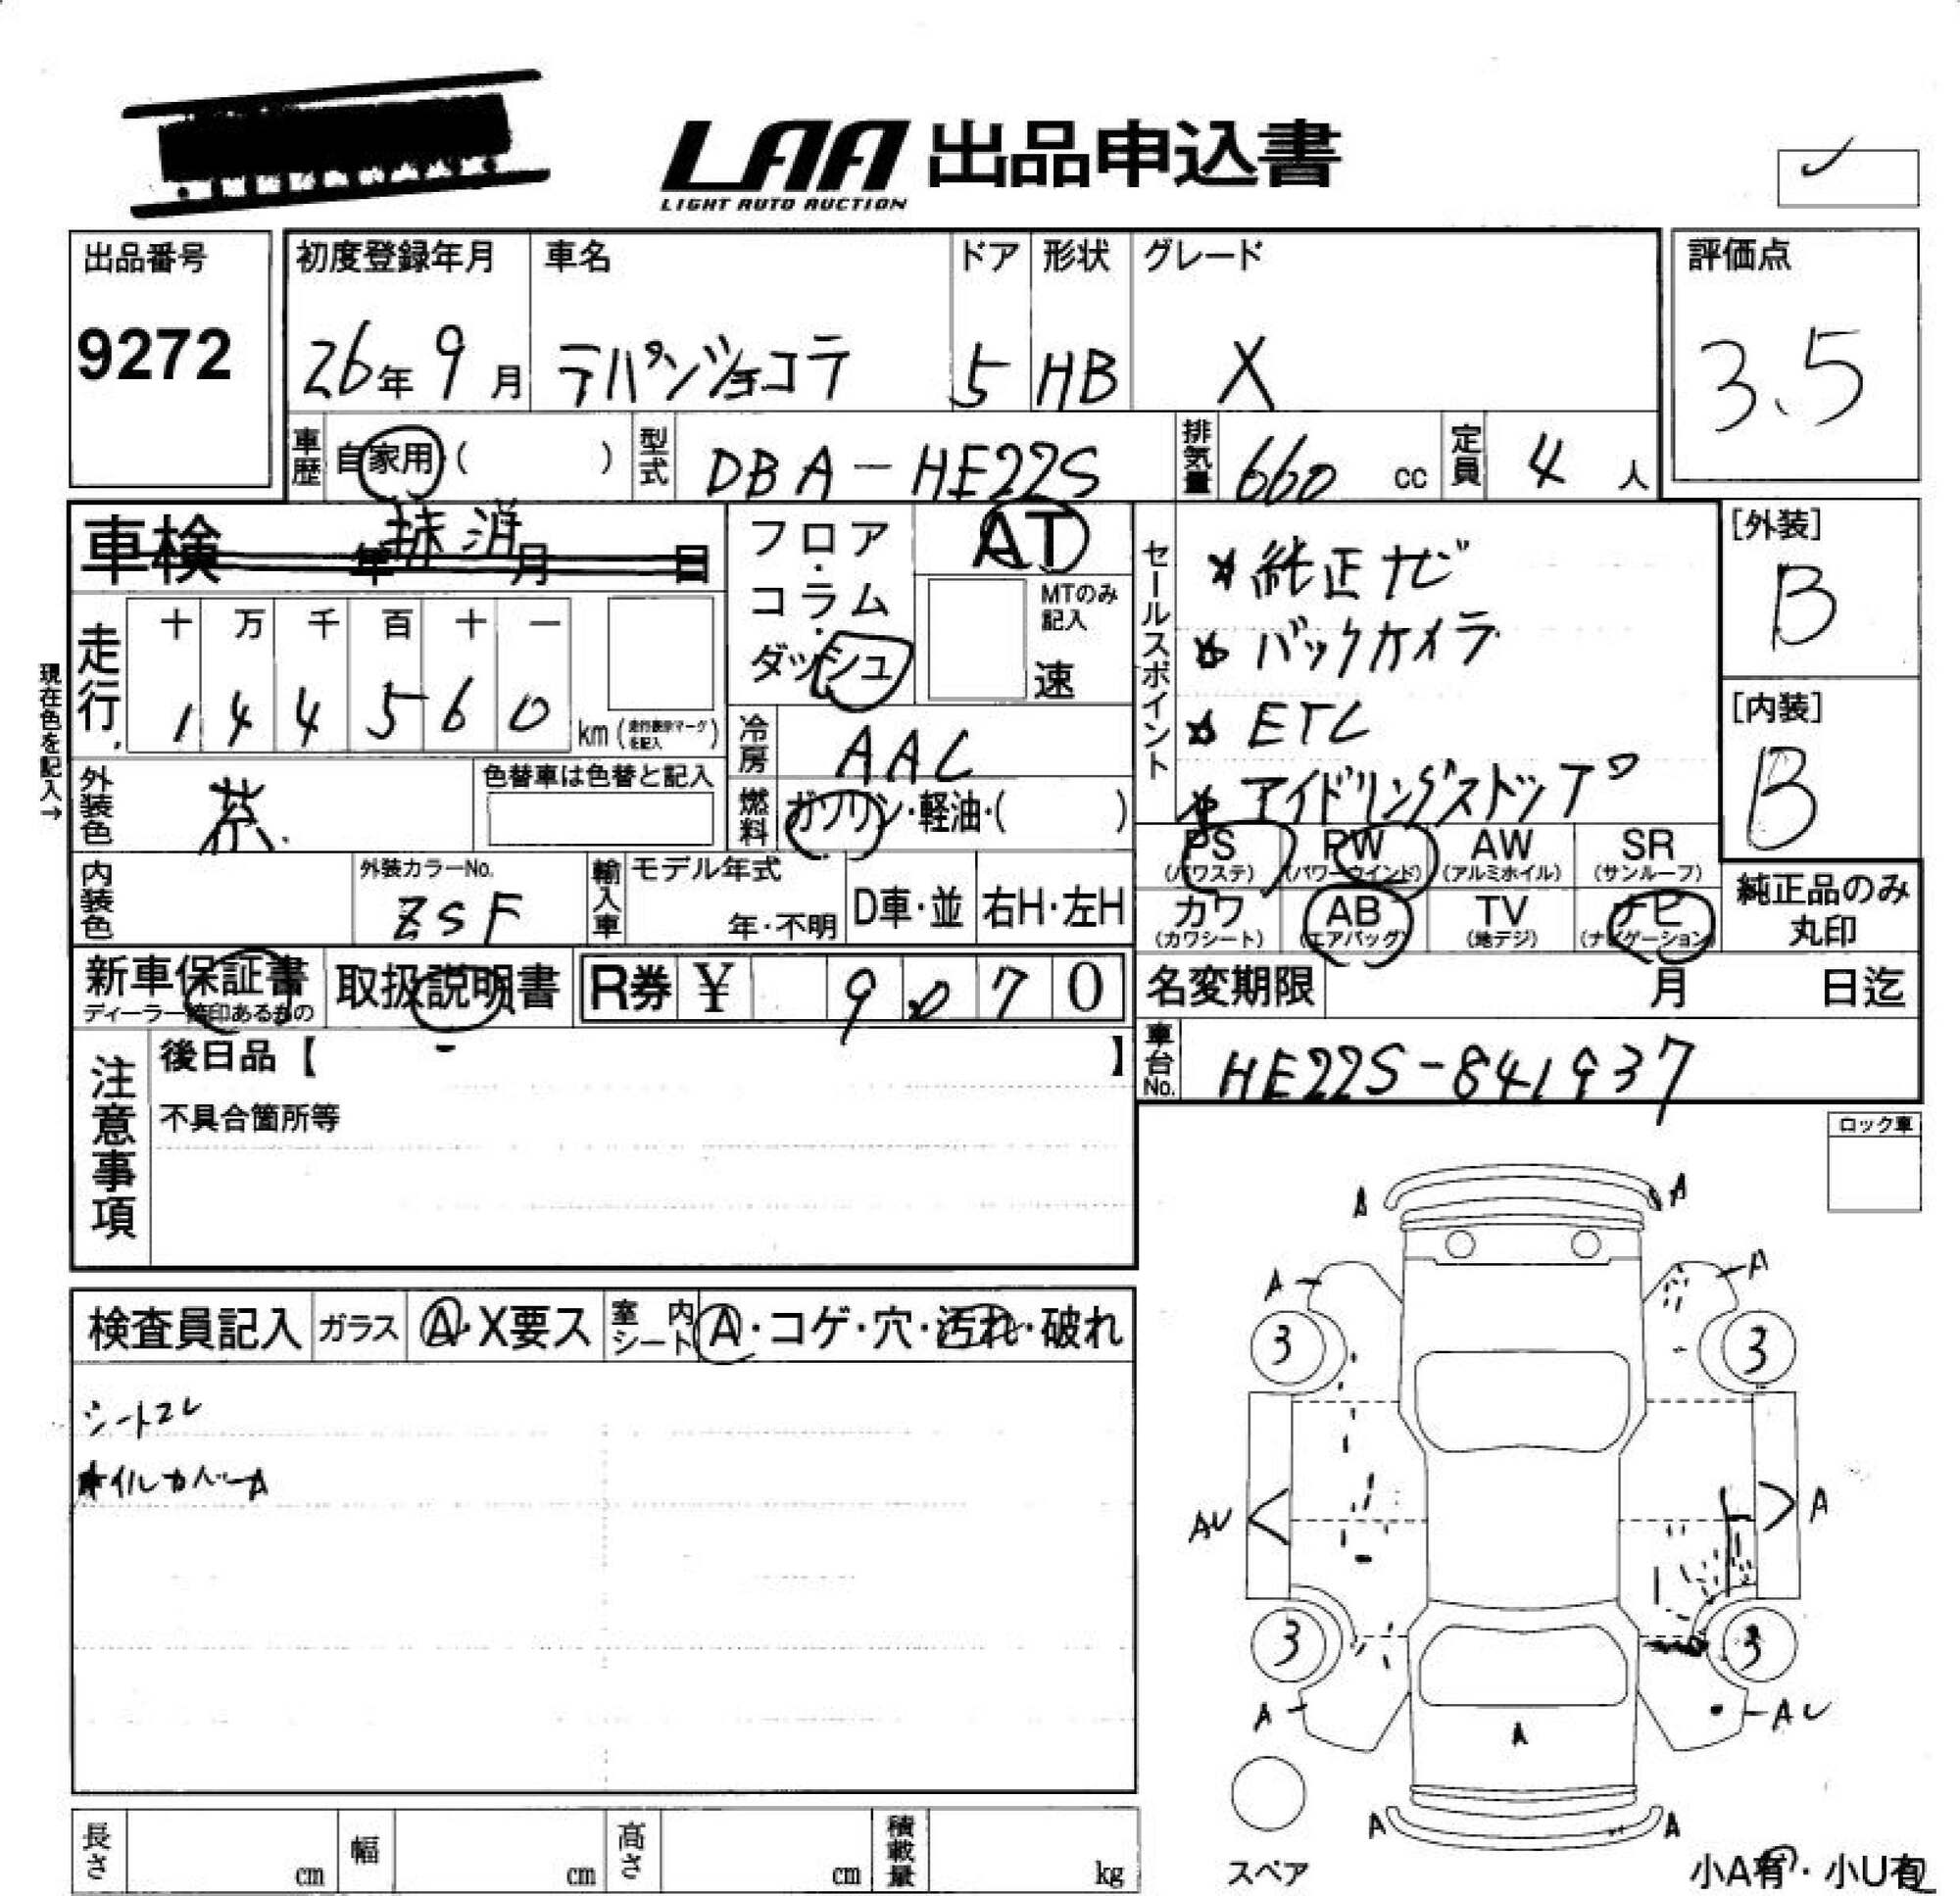 LAA 出品申込書
LIGHT AUTO AUCTION
出品番号
9272
初度登録年月
26年 9月
車名
ラパンショコラ
ドア
5
形状
HB
グレード
X
評価点
3.5
車歴 自家用・( )
型式 DBA-HE22S
排気量 660 cc
定員 4 人
車検 年 月 日
抹消
フロア・コラム・ダッシュ
AT
MTのみ記入
速
セールスポイント
★純正ナビ
★バックカメラ
★ETC
★アイドリングストップ
[外装]
B
[内装]
B
現在色を記入→
走行
十 万 千 百 十 一
1 4 4 5 6 0 km (走行表示マークを記入)
冷房 AAC
外装色 茶
色替車は色替と記入
燃料 ガソリン・軽油・( )
PS (パワステ)
PW (パワーウインド)
AW (アルミホイル)
SR (サンルーフ)
カワ (カワシート)
AB (エアバッグ)
TV (地デジ)
ナビ (ナビゲーション)
純正品のみ丸印
内装色
外装カラーNo.
ZSF
輸入車
モデル年式
年・不明
D車・並
右H・左H
新車保証書
取扱説明書
R券 ¥ 9070
名変期限 月 日迄
車台No. HE22S-841937
注意事項
後日品【 】
不具合箇所等
ロック車
検査員記入
ガラス A・X要ス
室内シート A・コゲ・穴・汚れ・破れ
シートスレ
ホイルカバーA
A A
A A
3 3
AU A
3 3
A AU
A
A A
スペア
小A有・小U有
長さ cm
幅 cm
高さ cm
積載量 kg